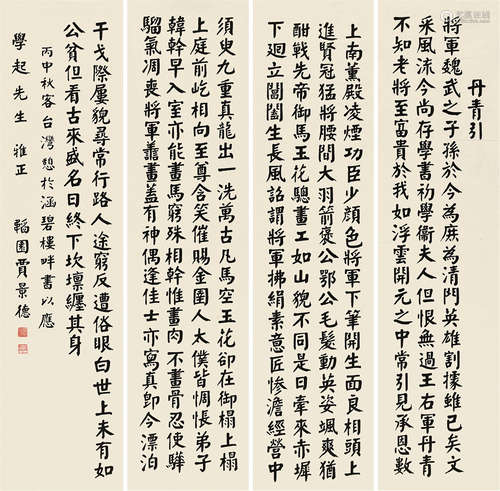 丹青引
將軍魏武之子孫於今為庶為清門英雄割據雖已矣文
采風流今尚存學書初學衛夫人但恨無過王右軍丹青
不知老將至富貴於我如浮雲開元之中常引見承恩數
上南薰殿凌煙功臣少顏色將軍下筆開生面良相頭上
進賢冠猛將腰間大羽箭褒公鄂公毛髮動英姿颯爽猶
酣戰先帝御馬玉花驄畫工如山貌不同是日牽來赤墀
下迥立閶闔生長風詔謂將軍拂絹素意匠慘澹經營中
須臾九重真龍出一洗萬古凡馬空玉花卻在御榻上榻
上庭前屹相向至尊含笑催賜金圉人太僕皆惆悵弟子
韓幹早入室亦能畫馬窮殊相幹惟畫肉不畫骨忍使驊
騮氣凋喪將軍譱畫蓋有神偶逢佳士亦寫真即今漂泊
干戈際屢貌尋常行路人途窮反遭俗眼白世上未有如
公貧但看古來盛名日終下坎壈纏其身
丙申秋客台灣憩於涵碧樓畔書以應
學起先生 雅正
韜園賈景德